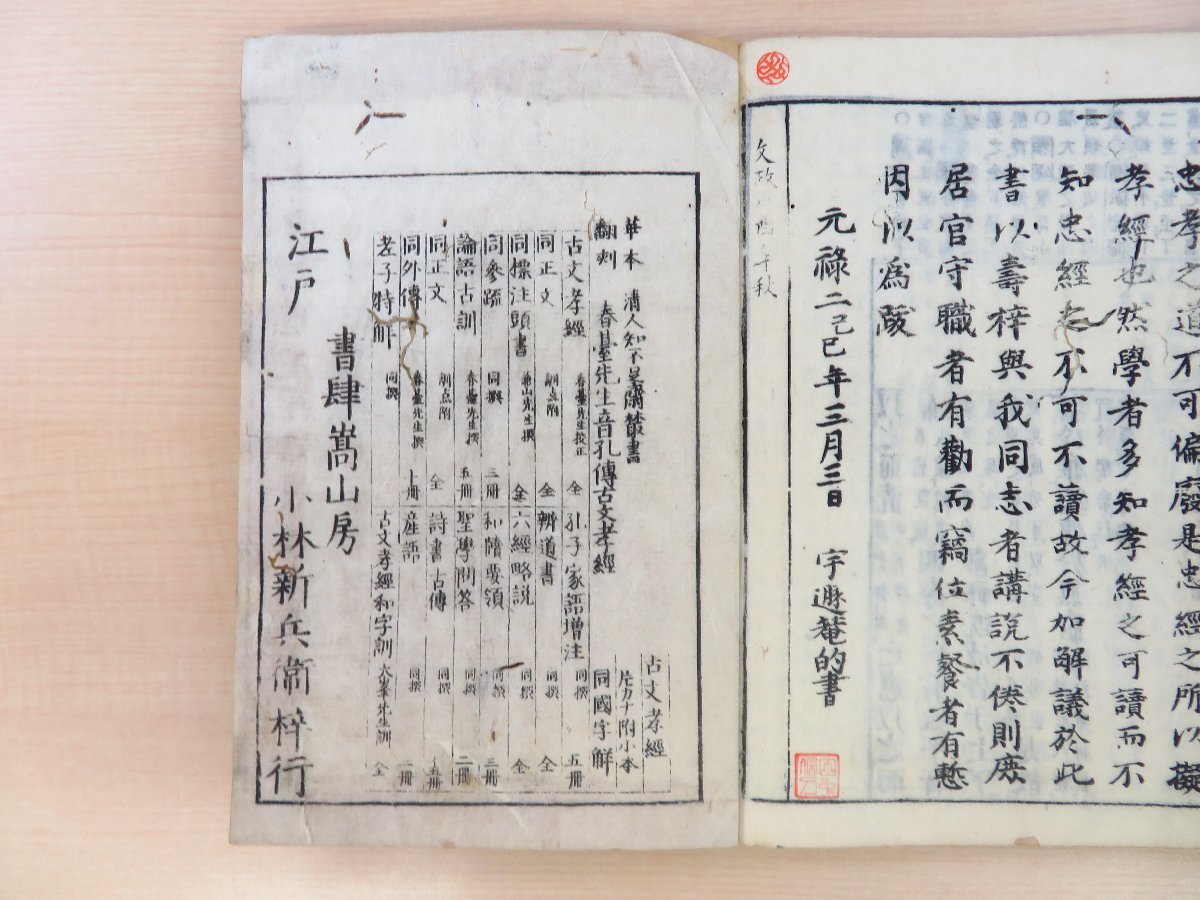 忠孝之道不可偏廢是忠經之所以擬
孝經也然學者多知孝經之可讀而不
知忠經老不可不讀故今如解議於此
書以壽梓與我同志者講說不倦則庶
居官守職者有勸而竊位素餐者有懲
因以爲跋
元祿二己巳年三月三日 宇遯菴的書
文政八酉年秋
古文孝經
片カナ附小本
華本 翻刻 清人知不足齋叢書
春臺先生音孔傳古文孝經
同國字解
古文孝經 春臺先生校正 全
孔子家語增注 同撰 五冊
同正文 訓点附 全
辨道書 同撰 全
同標注頭書 兼山先生撰 全
六經略說 同撰 全
同參疏 同撰 三冊
和讀要領 同撰 三冊
論語古訓 春臺先生撰 五冊
聖學問答 同撰 二冊
同正文 訓点附 全
詩書古傳 同撰 十五冊
同外傳 春臺先生撰 十冊
産語 同撰 二冊
老子特解 同撰
古文孝經和字訓 大峯先生訓 全
書肆嵩山房
江戸 小林新兵衞梓行